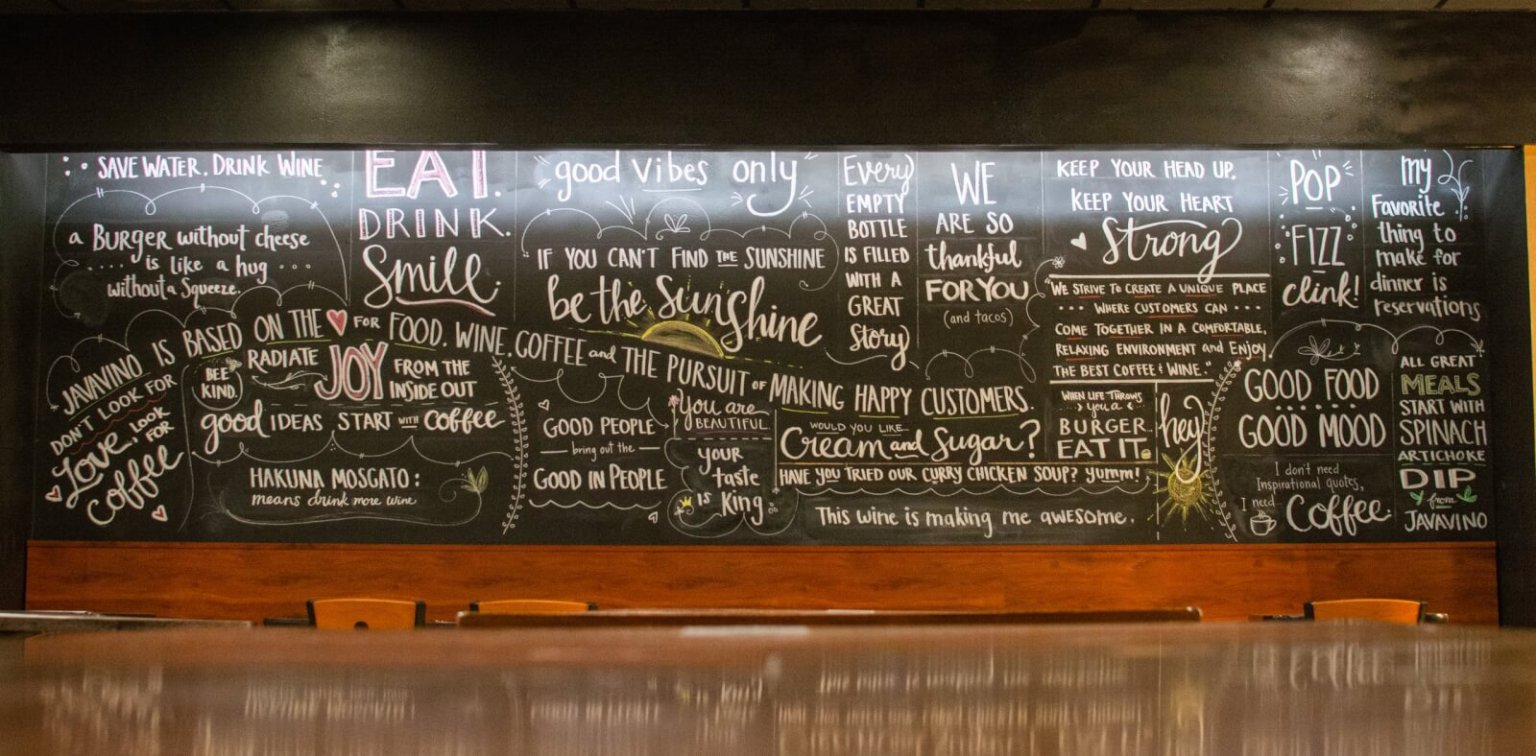 SAVE WATER. DRINK WINE
a BURGER without cheese
is like a hug
without a squeeze.
EAT.
DRINK.
Smile.
good vibes only
IF YOU CAN'T FIND THE SUNSHINE
be the sunshine
Every
EMPTY
BOTTLE
IS FILLED
WITH A
GREAT
Story
WE
ARE SO
thankful
FOR YOU
(and tacos)
KEEP YOUR HEAD UP.
KEEP YOUR HEART
Strong
"WE STRIVE TO CREATE A UNIQUE PLACE
WHERE CUSTOMERS CAN
COME TOGETHER IN A COMFORTABLE,
RELAXING ENVIRONMENT and ENJOY
THE BEST COFFEE & WINE."
POP
FIZZ
clink!
my
Favorite
thing to
make for
dinner is
reservations
JAVAVINO IS BASED ON THE ♥ FOR FOOD, WINE, COFFEE and THE PURSUIT OF MAKING HAPPY CUSTOMERS.
DON'T LOOK FOR
Love, LOOK
FOR
Coffee
BEE
KIND.
RADIATE
JOY
FROM THE
INSIDE OUT
good IDEAS START WITH coffee
HAKUNA MOSCATO:
means drink more wine
GOOD PEOPLE
bring out the
GOOD IN PEOPLE
You are
BEAUTIFUL
your
taste
is
King
WOULD YOU LIKE
Cream and Sugar?
HAVE YOU TRIED OUR CURRY CHICKEN SOUP? yumm!
This wine is making me awesome.
WHEN LIFE THROWS
you a
BURGER
EAT IT.
hey
GOOD FOOD
GOOD MOOD
I don't need
Inspirational quotes,
I need
Coffee.
ALL GREAT
MEALS
START WITH
SPINACH
ARTICHOKE
DIP
from
JAVAVINO